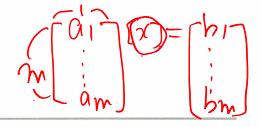 1
m [a1 ⋮ am] [x] = [b1 ⋮ bm]